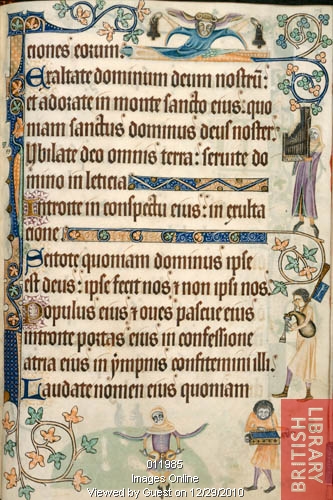 ciones eorum
Exaltate dominum deum nostrũ:
et adorate in monte sancto eius: quo
niam sanctus dominus deus noster
Iubilate deo omnis terra: seruite do
mino in leticia
Introite in conspectu eius: in exulta
cione
Scitote quoniam dominus ipse
est deus: ipse fecit nos ⁊ non ipsi nos
Populus eius ⁊ oues pascue eius
introite portas eius in confessione
atria eius in ympnis confitemini illi.
Laudate nomen eius quoniam
BRITISH
LIBRARY
011985
Images Online
Viewed by Guest on 12/29/2010